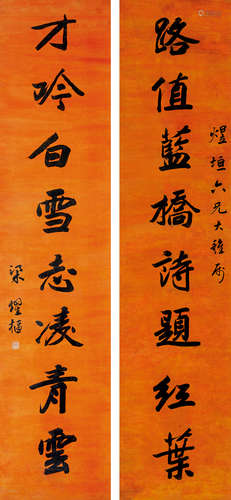 煜垣六兄大雅屬
路值藍橋詩題紅葉
才吟白雪志凌青雲
梁耀樞